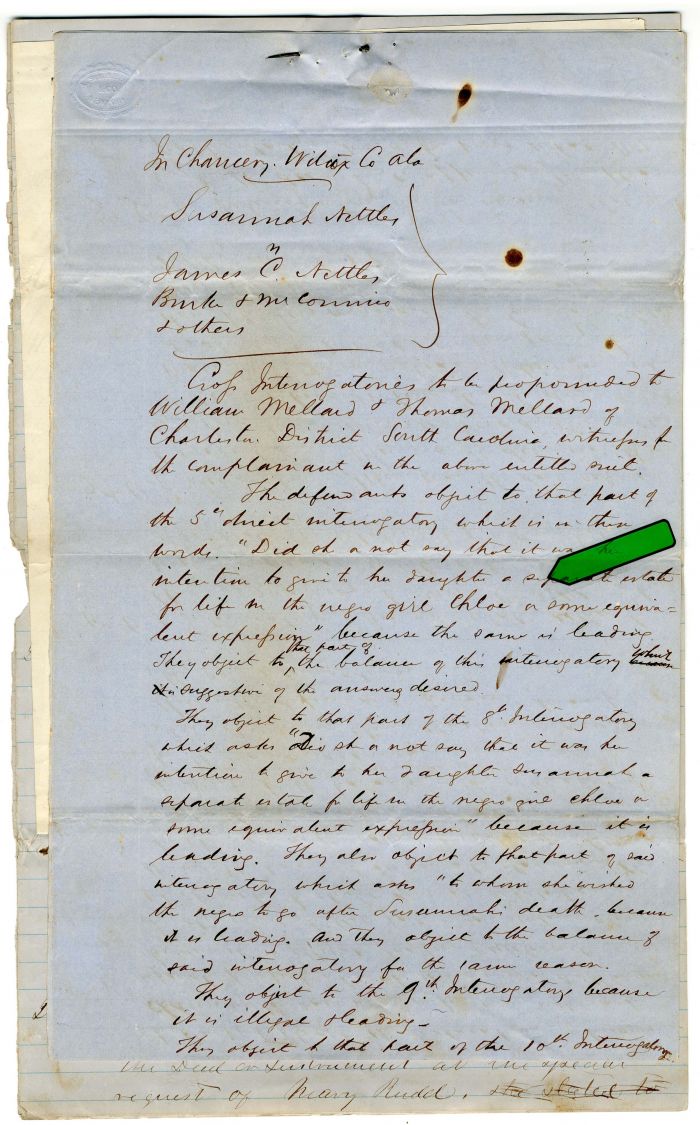 In Chancery. Wilcox Co Ala
Susannah Nettles
James C. Nettles
n
Burke &
& others
Cross Interrogatories to be propounded to
William Mellard & Thomas Mellard of
Charleston District South Carolina, witnesses for
the complainant in the above entitled suit.
The defendants object to that part of
the 5th direct interrogatory which is in these
words. "Did she not say that it was
intention to give to her daughter a separate estate
for life in the negro girl Chloe or some equiva=
lent expression" because the same is leading
that part of
They object to the balance of this interrogatory which
is suggestive of the answers desired.
They object to that part of the 8th Interrogatory
which asks "Did she not say that it was her
intention to give to her daughter Susannah a
separate estate for life in the negro girl Chloe or
some equivalent expression" because it is
leading. They also object to that part of said
interrogatory which asks "to whom she wished
the negro to go after Susannahs death, because
it is leading. And they object to the balance of
said interrogatory for the same reason.
They object to the 9th Interrogatory because
it is illegal & leading –
They object to that part of the 10th Interrogatory
the Deed or Instrument at the special
request of Mary Rudd. she stated to